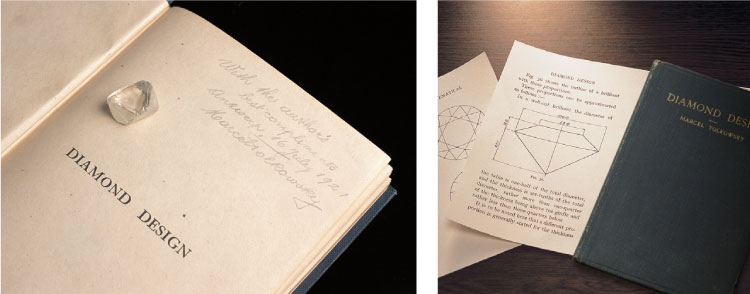 With the author's
best compliments
16 July 1921
Marcel Tolkowsky
DIAMOND DESIGN
DIAMOND DESIGN
Fig. 36 shows the outline of a brilliant
with these proportions.
These proportions can be approximated
as follows:—
In a well-cut brilliant the diameter of
the table is one-half of the total diameter,
and the thickness is six-tenths of the total
diameter, rather more than one-quarter
of the thickness being above the girdle and
rather less than three-quarters below.
It is to be noted here that a different pro-
portion is generally stated for the thickness
DIAMOND DES
MARCEL TOLKOWSKY